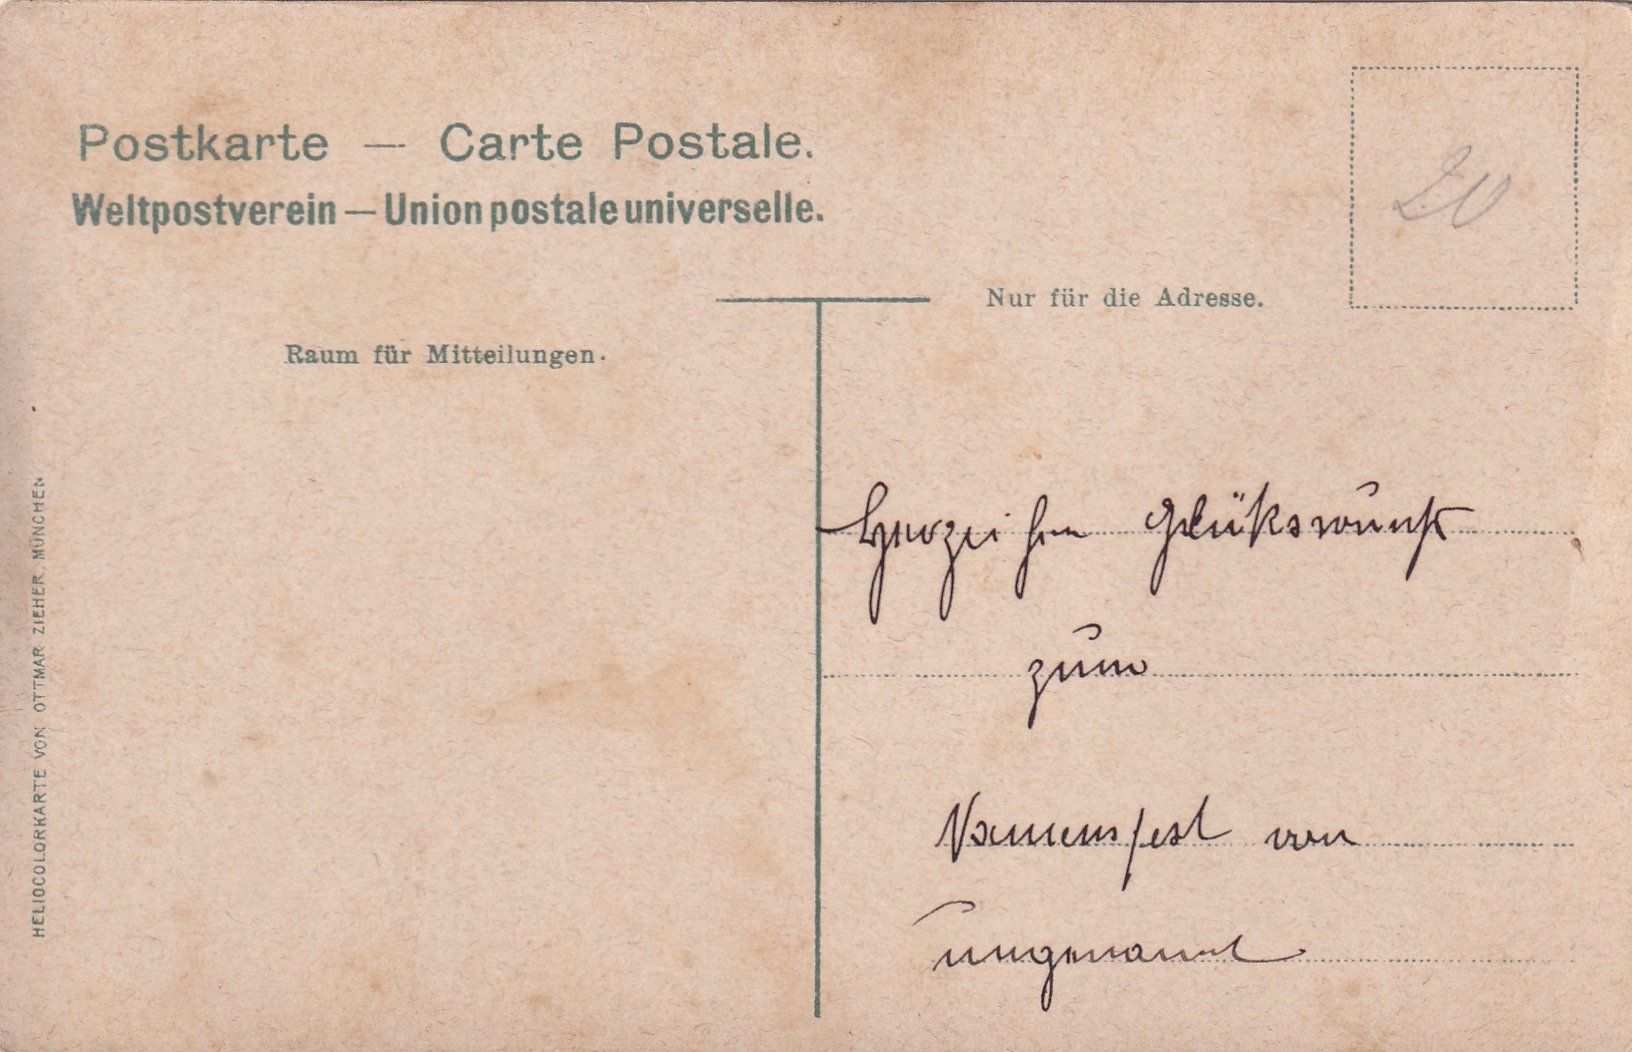 Postkarte — Carte Postale.
Weltpostverein — Union postale universelle.
20
Nur für die Adresse.
Raum für Mitteilungen.
HELIOCOLORKARTE VON OTTMAR ZIEHER, MÜNCHEN
Glükswunsch
zum
Namensfest von
ungenannt